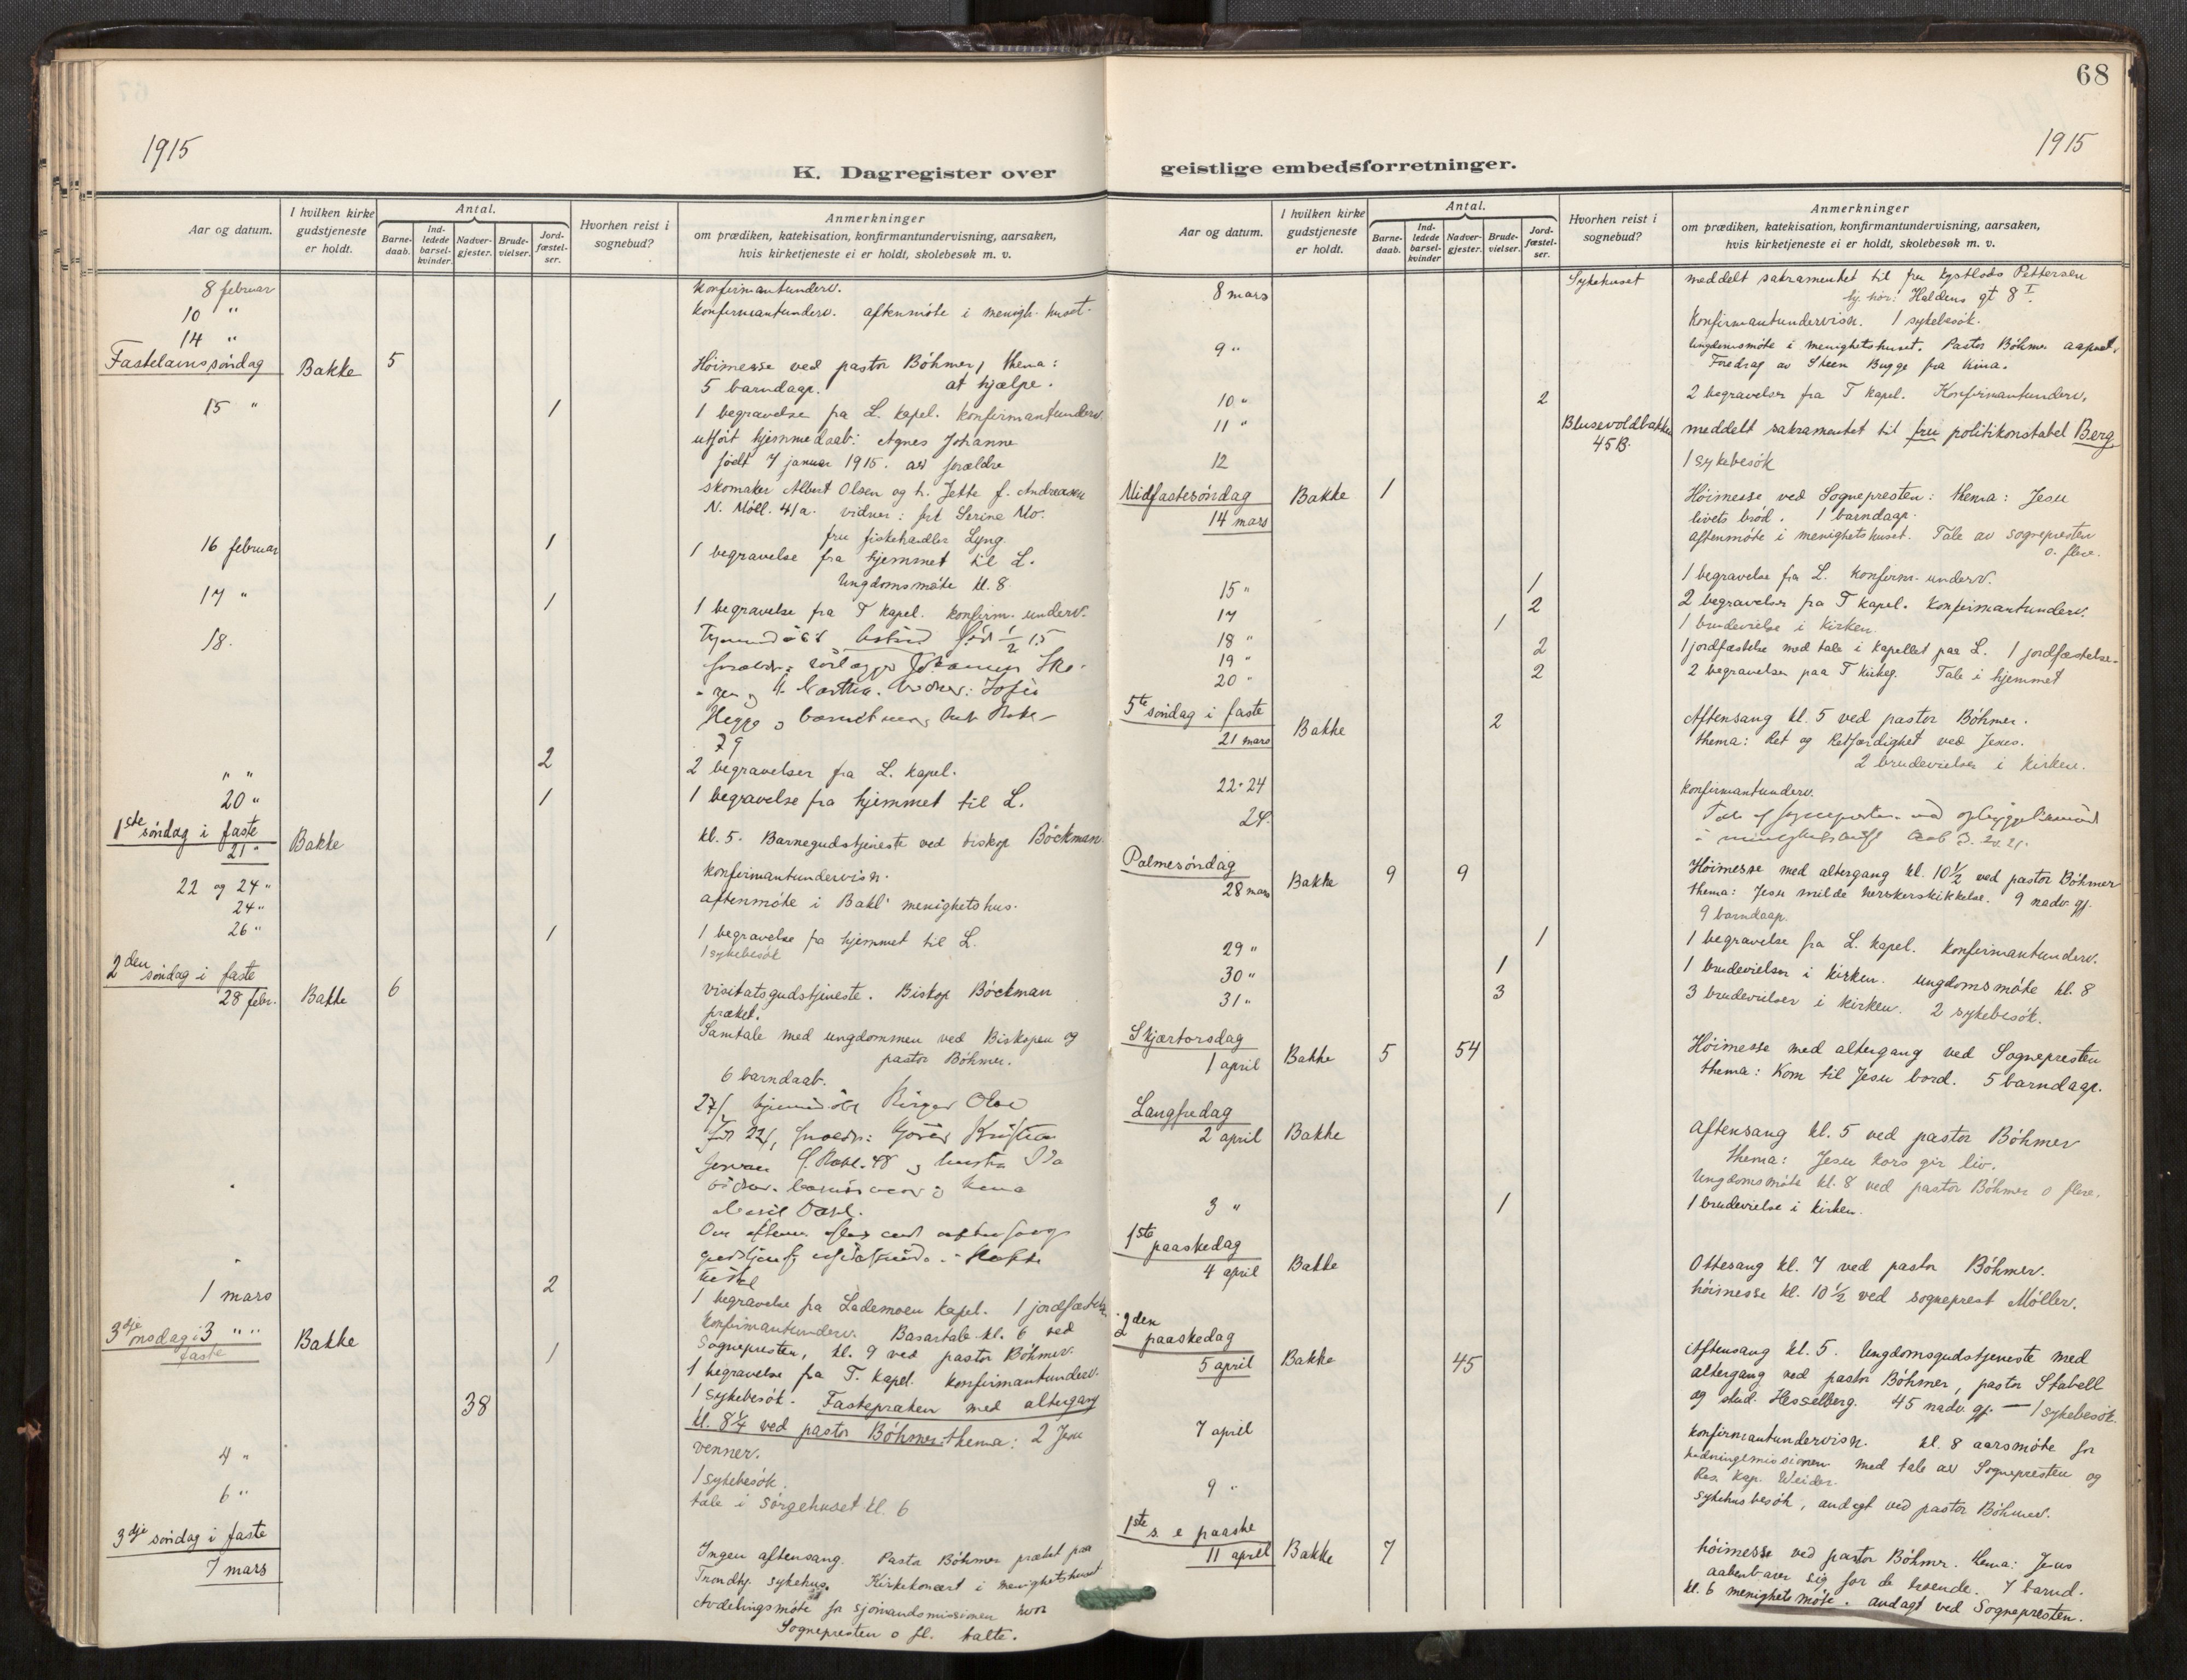 68
1915
1915
K. Dagregister over
geistlige embedsforretninger.
Aar og datum.
I hvilken kirke gudstjeneste er holdt.
Antal.
Barne-daab.
Ind-ledede barsel-kvinder.
Nadver-gjester.
Brude-vielser.
Jord-fæstel-ser.
Hvorhen reist i sognebud?
Anmerkninger
om prædiken, katekisation, konfirmantundervisning, aarsaken,
hvis kirketjeneste ei er holdt, skolebesøk m. v.
8 februar konfirmantunderv.
10 " konfirmantunderv. aftenmöte i menigh. huset.
14 "
Fastelavnssöndag Bakke 5 Höimesse ved pastor Böhmer, thema:
5 barndaap. at hjælpe.
15 " 1 1 begravelse fra L. kapel. konfirmantunderv.
utfört hjemmedaab: Agnes Johanne
födt 7 januar 1915. av forældre
skomaker Albert Olsen og h. Jette f. Andreassen
N. Möll. 41a. vidner: frk Serine Mo.
fru fiskehandler Lyng.
16 februar 1 1 begravelse fra hjemmet til L.
Ungdomsmöte kl. 8.
17 " 1 1 begravelse fra T kapel. konfirm. underv.
18.
79
" " 2 2 begravelser fra L. kapel.
20 " 1 1 begravelse fra hjemmet til L.
1ste söndag i faste
21 " Bakke kl. 5. Barnegudstjeneste ved biskop Böckman.
22 og 24 " konfirmantundervisn.
24 " aftenmöte i Bakl. menighetshus.
26 " 1 1 begravelse fra hjemmet til L.
1 sykebesök
2den söndag i faste
28 febr. Bakke 6 visitatsgudstjeneste. Biskop Böckman
præket.
Samtale med ungdommen ved Biskopen og
pastor Böhmer.
6 barndaab.
1 mars 2 1 begravelse fra Lademoen kapel. 1 jordfæstelse
konfirmantunderv. Basartale kl. 6 ved
Sognepresten, kl. 9 ved pastor Böhmer.
3 " " Bakke 1 1 begravelse fra T. kapel. konfirmantunderv.
faste
38 1 sykebesök. Fastepræken med altergang
kl. 8 1/4 ved pastor Böhmer. thema: 2 Jesu
venner.
4 " 1 sykebesök.
6 " tale i sörgehuset kl. 6
3dje söndag i faste
7 mars Ingen aftensang. Pastor Böhmer prækt paa
Trondhj. sykehus. Kirkekonsert i menighetshuset
Avdelingsmöte for sjömandsmissionen hvor
Sognepresten o fl. talte.
Aar og datum.
I hvilken kirke gudstjeneste er holdt.
Antal.
Barne-daab.
Ind-ledede barsel-kvinder
Nadver-gjester.
Brude-vielser.
Jord-fæstel-ser.
Hvorhen reist i sognebud?
Anmerkninger
om prædiken, katekisation, konfirmantundervisning, aarsaken,
hvis kirketjeneste ei er holdt, skolebesøk m. v.
8 mars Sykehuset meddelt sakramentet til fru Pettersen
Haldens gt 8 I.
Konfirmantundervisn. 1 sykebesök.
9 " Ungdomsmöte i menighetshuset. Pastor Böhmer aapnet.
Foredrag av Steen Bugge fra Kina.
10 " 2 2 begravelser fra T kapel. Konfirmantunderv.
11 " Blusevoldbakken 45B. meddelt sakramentet til fru politikonstabel Berg
12 1 sykebesök
Midfastesöndag
14 mars Bakke 1 Höimesse ved Sognepresten: thema: Jesu
livets bröd. 1 barndaap.
aftenmöte i menighetshuset. Tale av sognepresten
o. flere.
15 " 1 1 begravelse fra L. konfirm. underv.
17 2 2 begravelser fra T kapel. Konfirmantunderv.
18 " 1 1 brudevielse i kirken.
19 " 2 1 jordfæstelse med tale i kapellet paa L. 1 jordfæstelse.
20 " 2 2 begravelser paa T kirkeg. Tale i hjemmet
5te söndag i faste
21 mars Bakke 2 Aftensang kl. 5 ved pastor Böhmer.
thema: Ret og Retfærdighet ved Jesus.
2 brudevielser i kirken.
22-24 konfirmantunderv.
24.
Palmesöndag
28 mars Bakke 9 9 Höimesse med altergang kl. 10 1/2 ved pastor Böhmer
thema: Jesu milde herskerskikkelse. 9 nadv. gj.
9 barndaap.
29 " 1 1 begravelse fra L. kapel. konfirmantunderv.
30 " 1 1 brudevielser i kirken. ungdomsmöte kl. 8
31 " 3 3 brudevielser i kirken. 2 sykebesök.
Skjærtorsdag
1 april Bakke 5 54 Höimesse med altergang ved Sognepresten
thema: Kom til Jesu bord. 5 barndaap.
Langfredag
2 april Bakke Aftensang kl. 5 ved pastor Böhmer
thema: Jesu kors gir liv.
Ungdomsmöte kl. 8 ved pastor Böhmer o flere.
3 " 1 1 brudevielse i kirken.
1ste paaskedag
4 april Bakke Ottesang kl. 7 ved pastor Böhmer.
höimesse kl. 10 1/2 ved sogneprest Möller.
2den paaskedag
5 april Bakke 45 Aftensang kl. 5. Ungdomsgudstjeneste med
altergang ved pastor Böhmer, pastor Stabell
og stud. Hesselberg. 45 nadv. gj. — 1 sykebesök.
7 april konfirmantundervisn. kl. 8 aarsmöte for
hedningemissionen med tale av Sognepresten og
Res. Kap. Weider.
9 " sykehusbesök, andagt ved pastor Böhmer.
1ste s. e paaske
11 april Bakke 7 höimesse ved pastor Böhmer. thema: Jesus
aabenbarer sig for de troende. 7 barnd.
kl. 6 menighetsmöte. andagt ved Sognepresten.